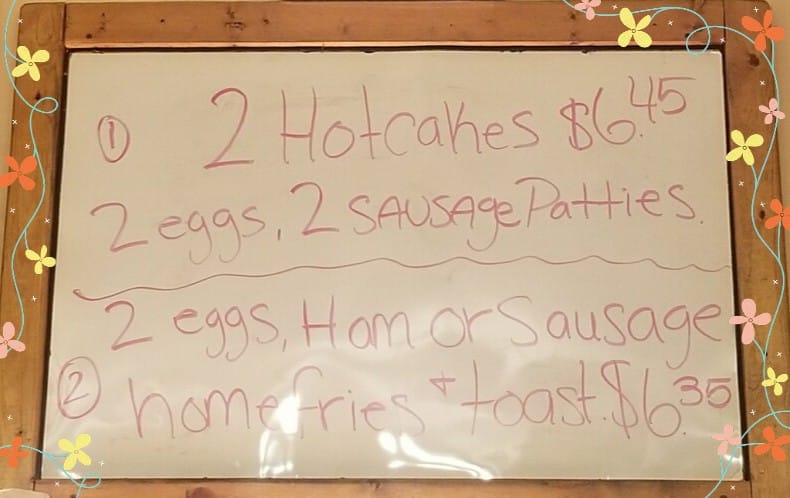 ① 2 Hotcakes $6.45
2 eggs, 2 SAUSAge Patties.
2 eggs, Ham or Sausage
② homefries + toast. $6.35